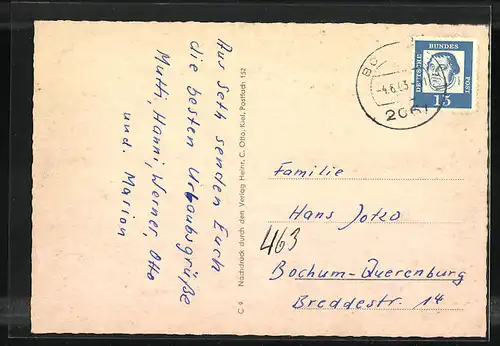 Aus Seth senden Euch
die besten Urlaubsgrüße
Mutti, Hanni, Werner, Otto
und. Marion
C 9 Nachdruck durch den Verlag Heinr. C. Otto, Kiel, Postfach 152
BO
-4.6.63-
DEUTSCHE
BUNDES
POST
15
Familie
Hans Jotzo
463
Bochum-Querenburg
Breddestr. 14